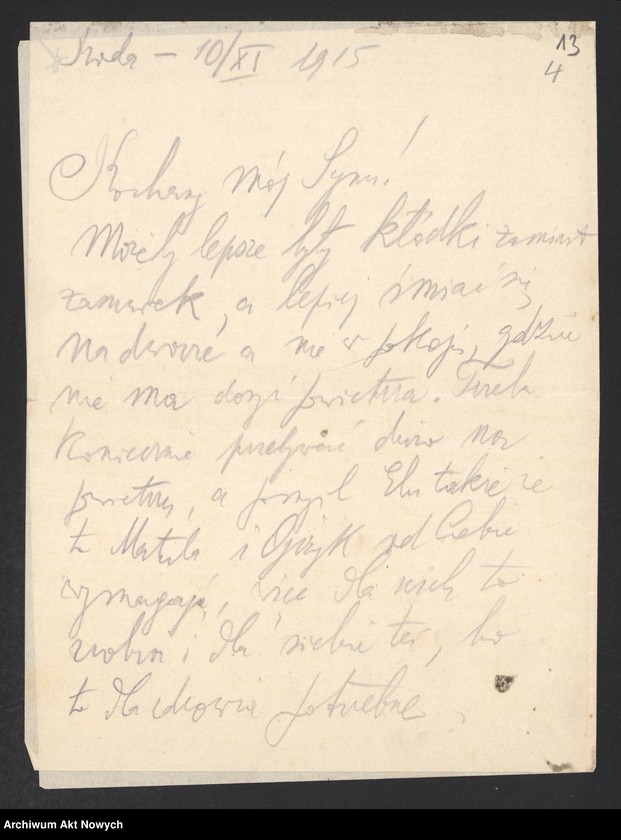 Środa – 10/XI 1915
13
4
Kochany mój Synu!
Możeby lepsze były kłódki zamiast
zamarek, a lepiej śmiać się
na dworze a nie w pokoju, gdzie
nie ma dosyć powietrza. Trzeba
koniecznie przebywać dużo na
powietrzu, a pomyśl także że
to Matula i Ojczyk od Ciebie
wymagają, więc dla nich to
zrobisz i dla siebie też, bo
to dla zdrowia potrzebne
Archiwum Akt Nowych